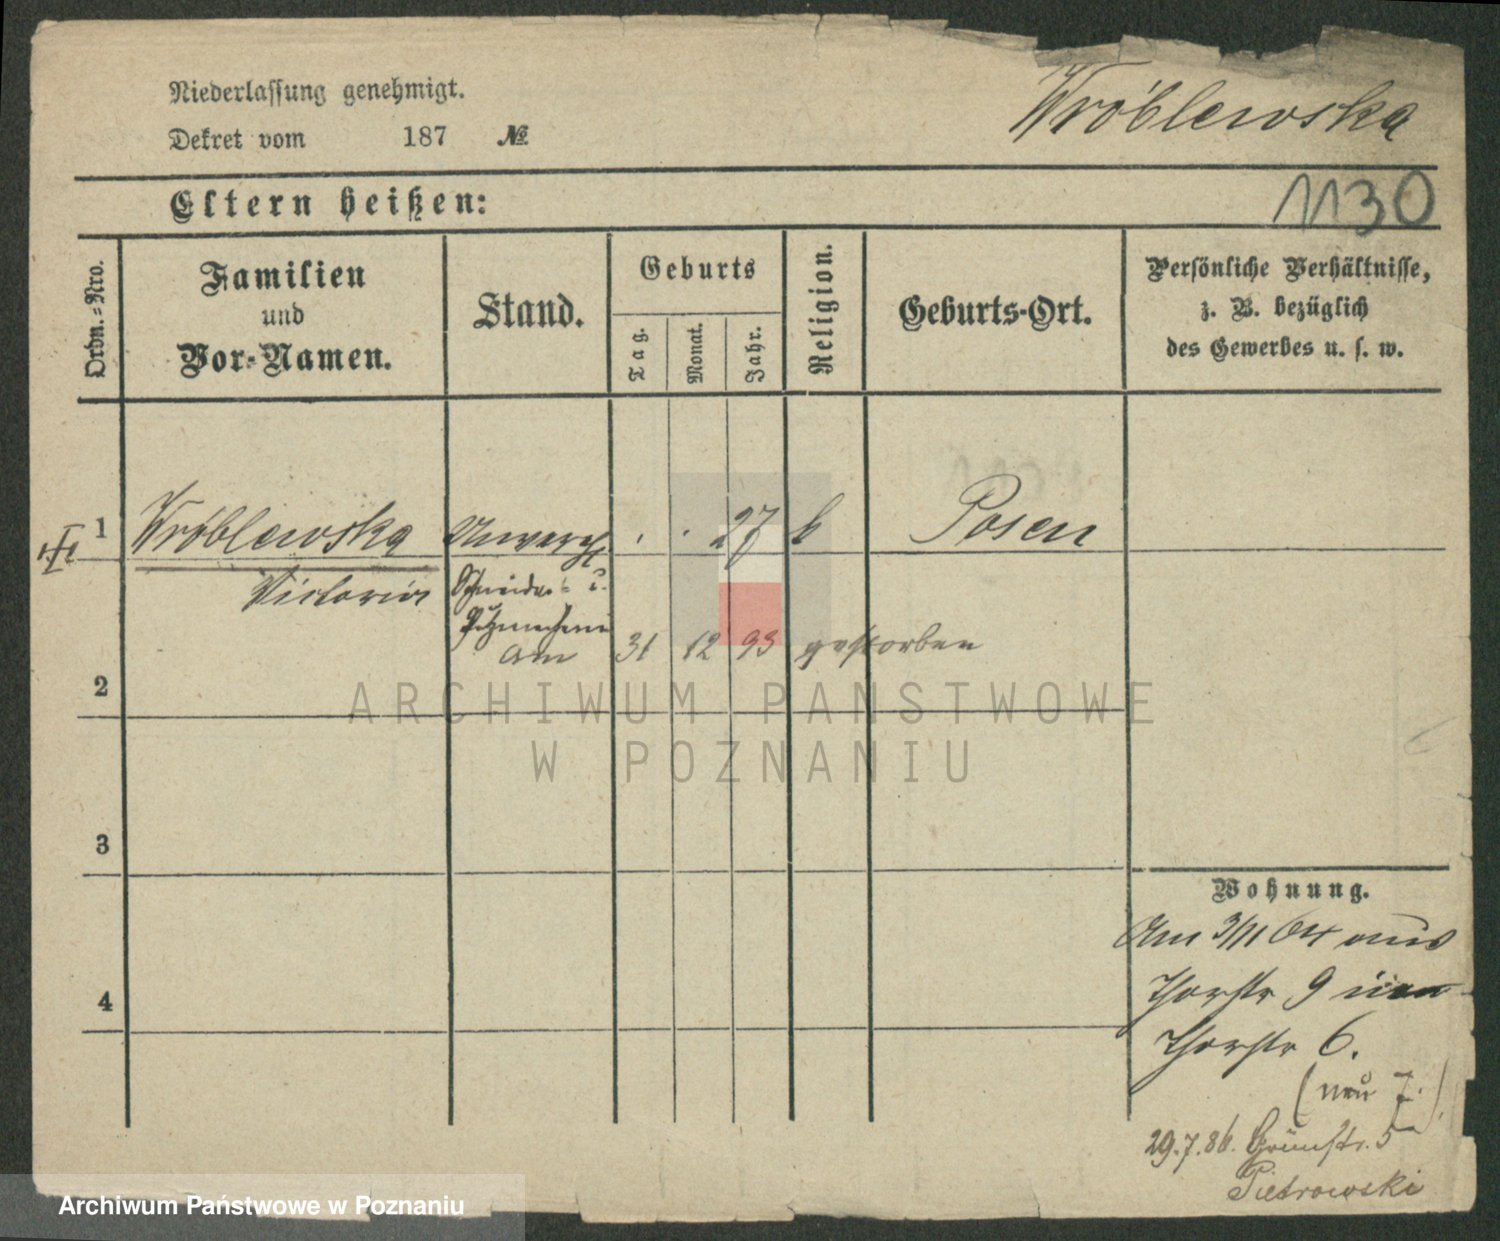 Niederlassung genehmigt.
Dekret vom 187 №
Wróblewska
1130
Eltern heißen:
Ordn.-Nro.
Familien
und
Vor-Namen.
Stand.
Geburts
Tag.
Monat.
Jahr.
Religion.
Geburts-Ort.
Persönliche Verhältnisse,
z. B. bezüglich
des Gewerbes u. s. w.
1 Wróblewska Unvereh 27 k Posen
Victoria Schneider= u.
Putzmacherin
am 31 12 93 gestorben
2
3
4
Wohnung.
Am 3/11 84 aus
Thorstr 9 nach
Thorstr 6.
(neu 7.)
29.7.86. Grünstr. 5
Pietrowski
ARCHIWUM PAŃSTWOWE
W POZNANIU
Archiwum Państwowe w Poznaniu